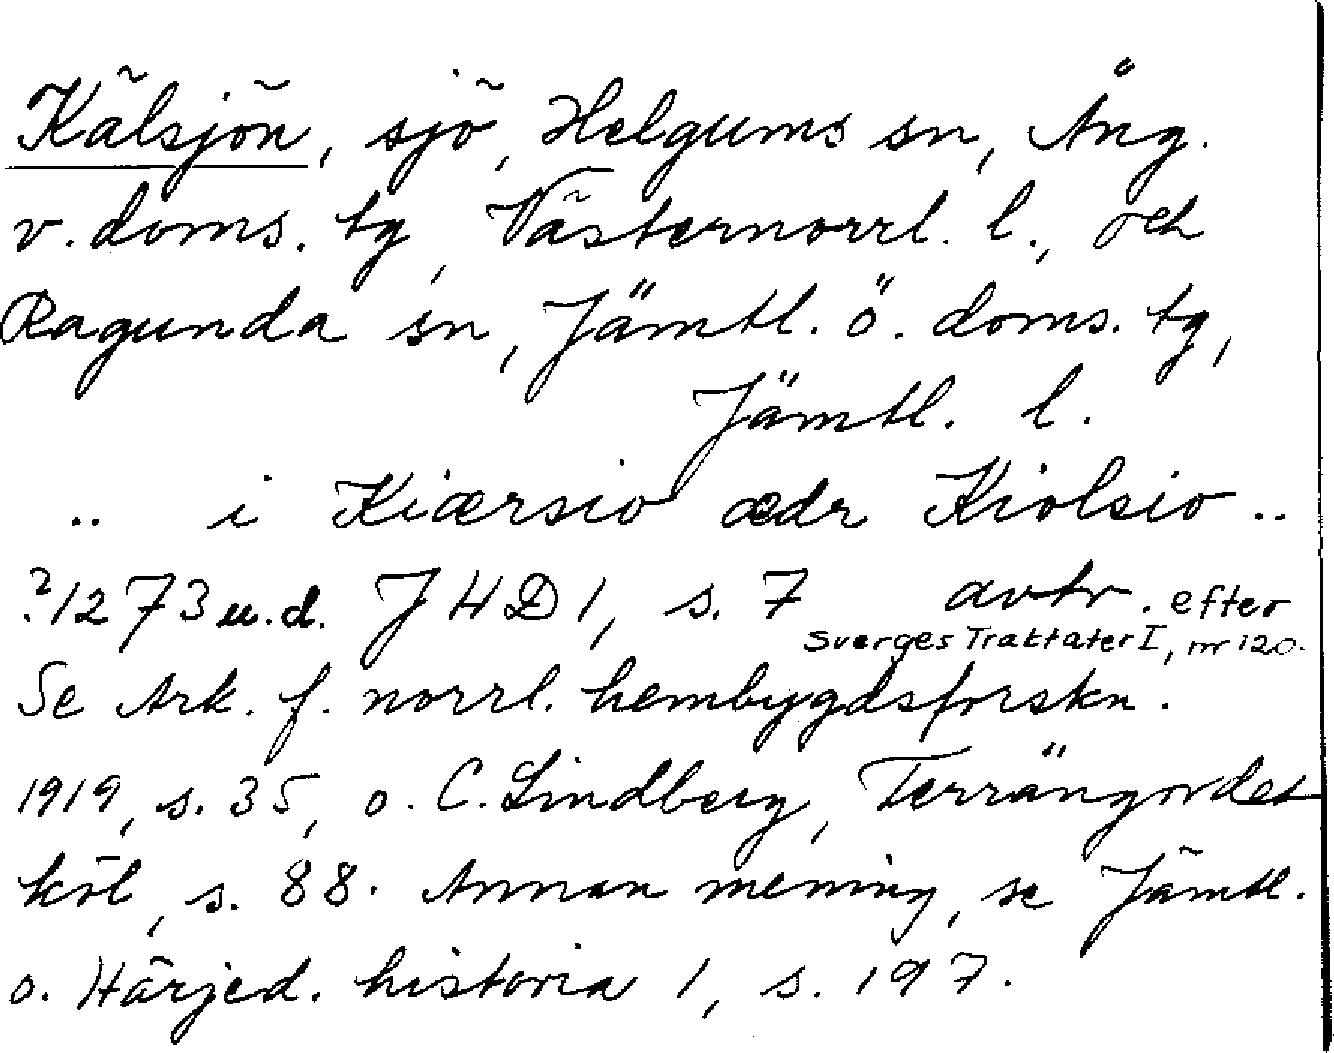 Kälsjön, sjö, Helgums sn, Ång.
v. doms. tg, Västernorrl. l., och
Ragunda sn, Jämtl. ö. doms. tg,
Jämtl. l.
.. i Kiærsio ædr Kiolsio ..
?1273 u.d. JHD 1, s. 7 avtr. efter
Sverges Traktater I, nr 120.
Se Ark. f. norrl. hembygdsforskn.
1919, s. 35, o. C. Lindberg, Terrängordet
köl, s. 88. Annan mening, se Jämtl.
o. Härjed. historia 1, s. 197.